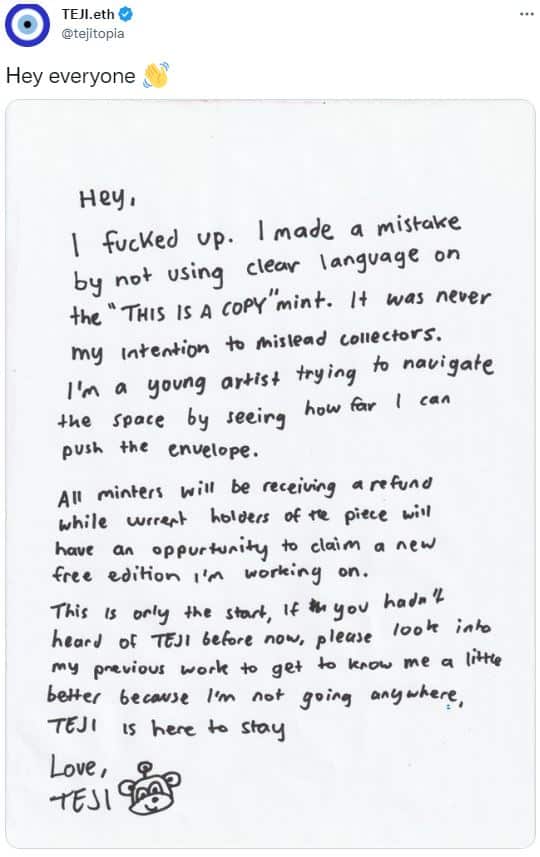 TEJI.eth
@tejitopia
Hey everyone 👋
Hey,
I fucked up. I made a mistake
by not using clear language on
the "THIS IS A COPY" mint. It was never
my intention to mislead collectors.
I'm a young artist trying to navigate
the space by seeing how far I can
push the envelope.
All minters will be receiving a refund
while current holders of the piece will
have an oppurtunity to claim a new
free edition i'm working on.
This is only the start, If you hadn't
heard of TEJI before now, please look into
my previous work to get to know me a little
better because I'm not going anywhere,
TEJI is here to stay
Love,
TEJI